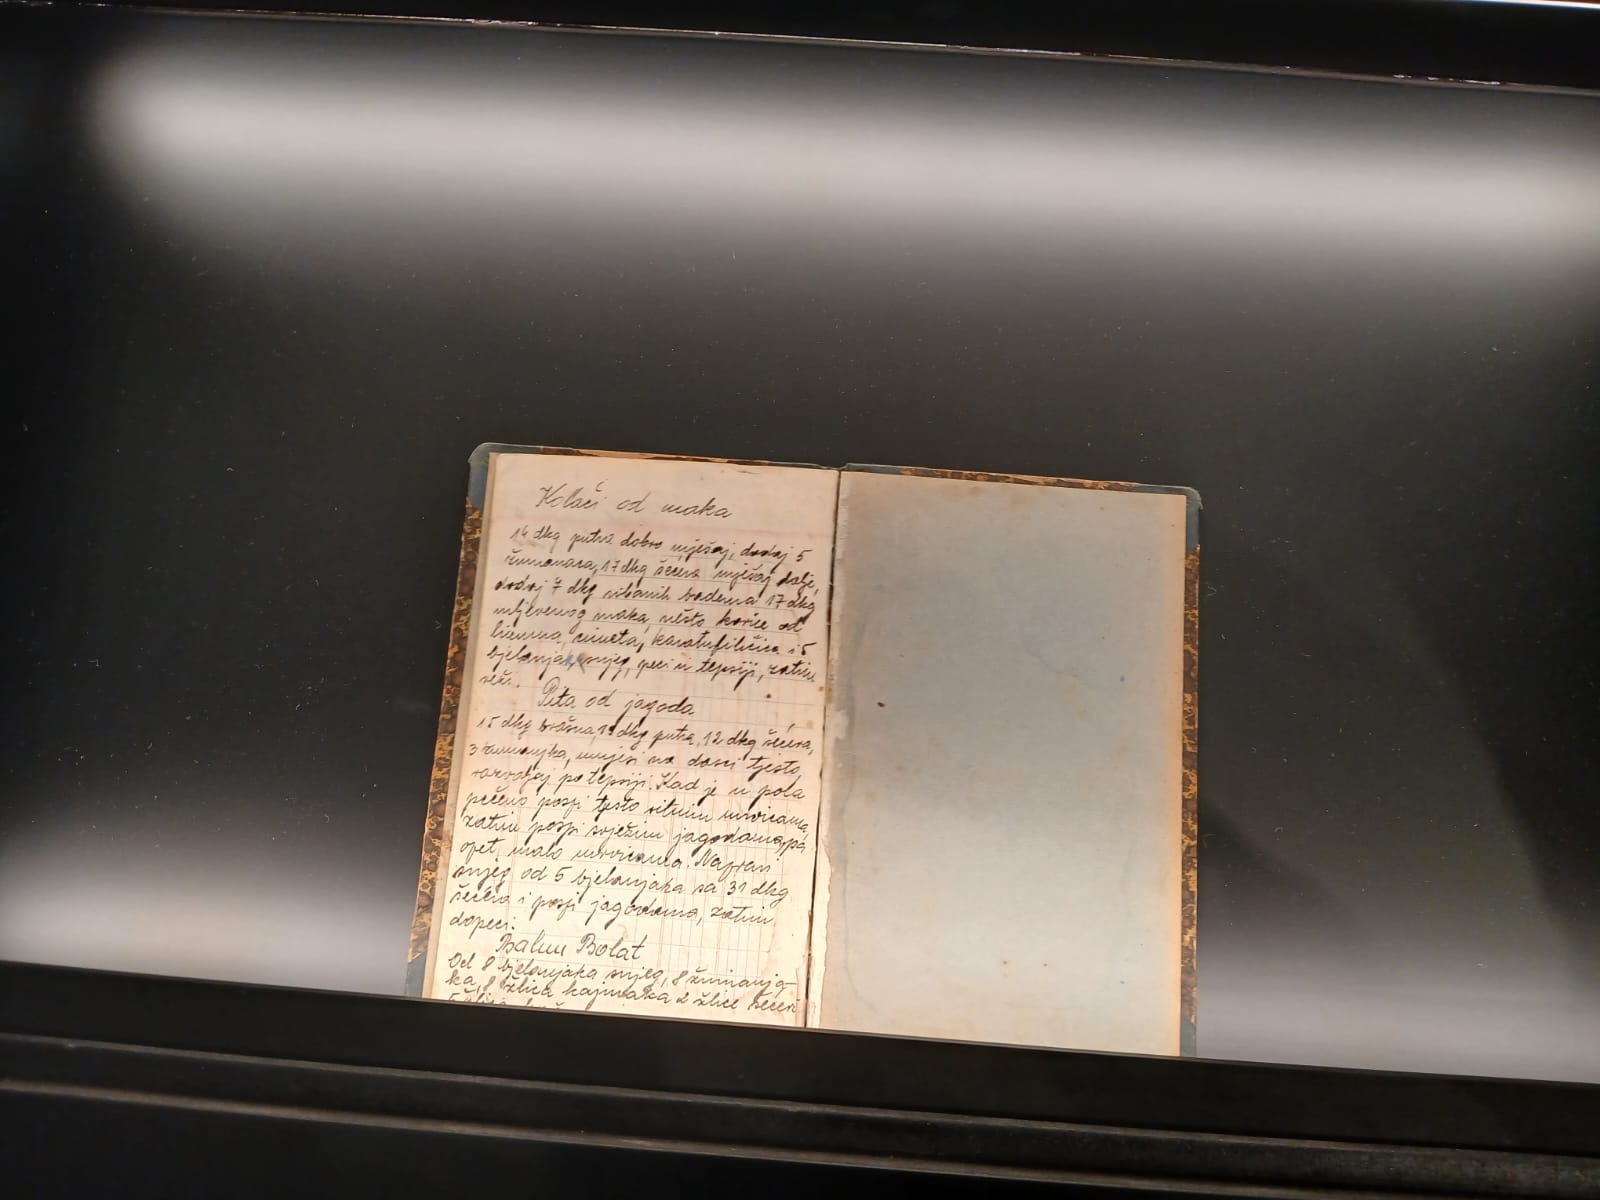 Kolači od maka
14 dkg putra dobro mješaj, dodaj 5
žumanaca, 17 dkg šećera mješaj dalje,
dodaj 7 dkg ribanih badema 17 dkg
mljevenog maka, nešto korice od
limuna, cimeta, karatufilčića i 5
bjelanjaka snjeg, peci u tepsiji, zatim
reži.
Pita od jagoda
15 dkg brašna, dkg putra, 12 dkg šećera,
3 žumanjka, umjesi na dasci tjesto
razvaljaj po tepsiji. Kad je u pola
pečeno pospi tjesto sitnim mrvicama,
zatim pospi svježim jagodama, pa
opet malo mrvicama. Napravi
snjeg od 5 bjelanjaka sa 31 dkg
šećera i pospi jagodama, zatim
dopeci.
Bolat
Od 8 bjelanjaka snjeg, 8 žumanja-
ka, 8 žlica kajmaka 2 žlice šećera